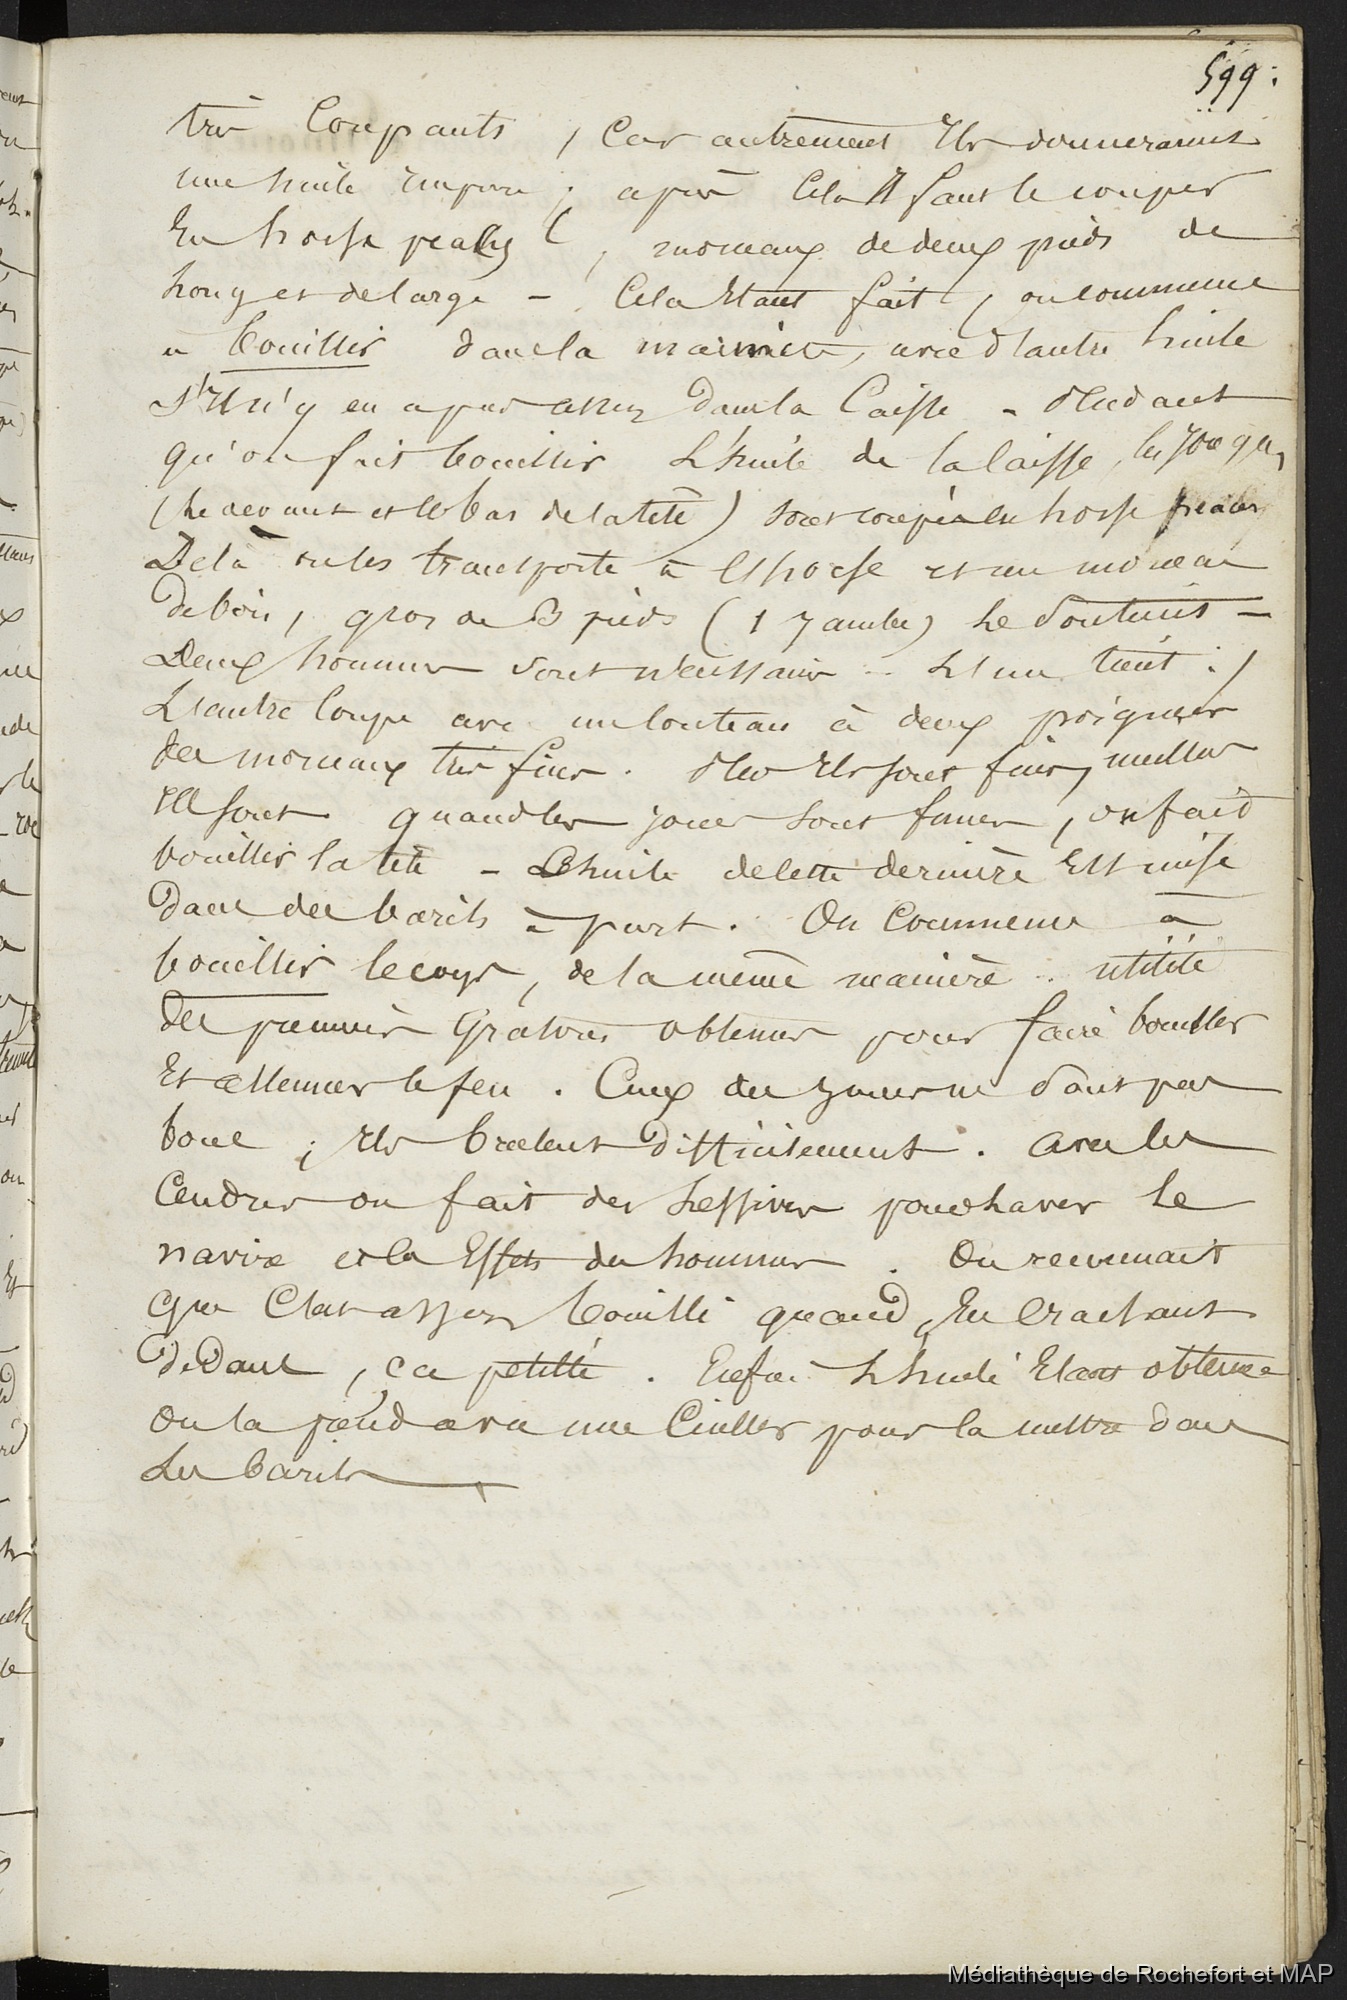 599.
très Coupants, Car autrement Ils donneraient
une huile impure; après Cela Il faut le couper
En horse, morceaux de deux pieds de
Long et de large - Cela Etant fait, on commence
a bouillir dans la, avec d'autre huile
S'Il n'y en a pas assez dans la Caisse - Pendant
qu'on fait bouillir L'huile de la Caisse, les joues
(Le devant et le bas de la tête) sont coupés en horse
De là on les transporte à et un morceau
De bois, gros de 3 pieds (1 jambe) Le Soutient -
Deux hommes sont nécessaires - L'un tient;
L'autre Coupe avec un Couteau à deux poignées
des morceaux très fins. Plus Ils sont fins, meilleurs
Ils sont quand les joues sont finies, on fait
bouillir la tête - L'huile de Cette dernière Est mise
Dans des barils à part. On Commence à
bouillir le corps, de la même manière. utilité
Des premiers Gratons obtenus pour faire bouillir
Et allumer le feu. Ceux des joues ne sont pas
bons; Ils brulent Difficilement. Avec les
Cendres on fait des Lessives pour laver le
navire et les Effets des hommes. On reconnait
que C'est assez bouilli quand, En Crachant
Dedans, ca petille. Enfin L'huile Etant obtenue
On la prend avec une Cuiller pour la mettre dans
Les barils
Médiathèque de Rochefort et MAP